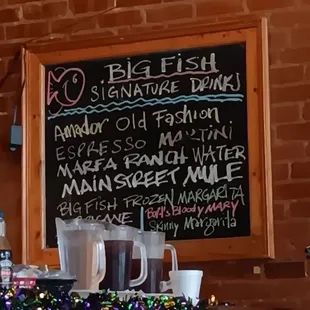 BIG FISH
SIGNATURE DRINKS
Amador Old Fashion
ESPRESSO MARTINI
MARFA RANCH WATER
MAIN STREET MULE
BIG FISH FROZEN MARGARITA
Bloody MARY
Skinny Margarita